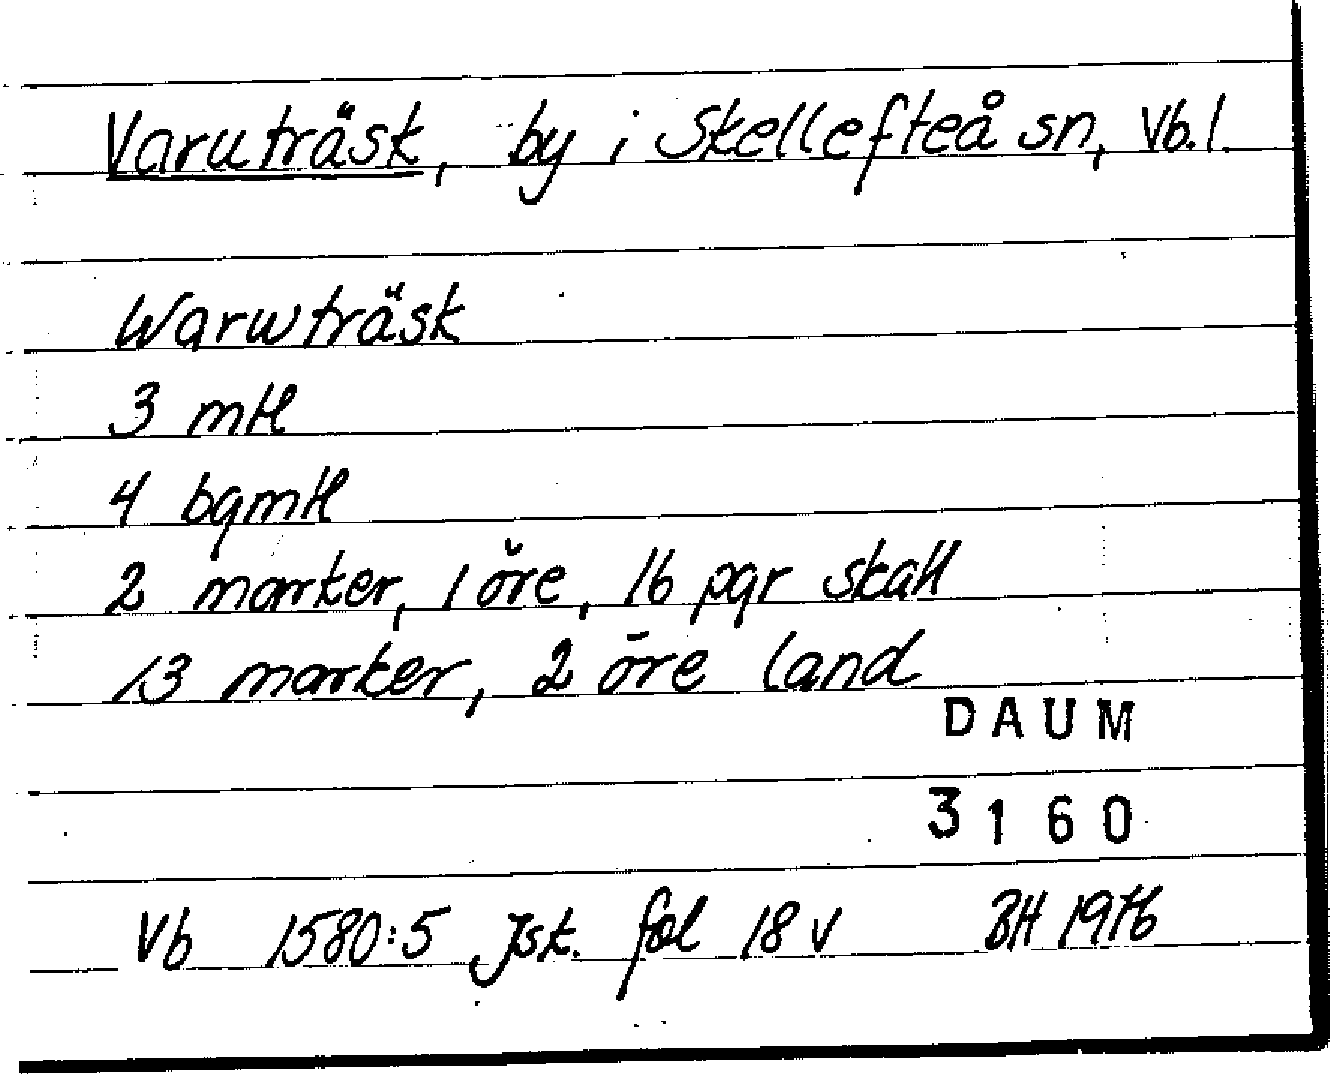 Varuträsk, by i Skellefteå sn, Vb.l.
Warwträsk
3 mtl
4 bgmtl
2 marker, 1 öre, 16 pgr skatt
13 marker, 2 öre land
DAUM
3160
Vb 1580:5 Jsk. fol 18 v BH 1976